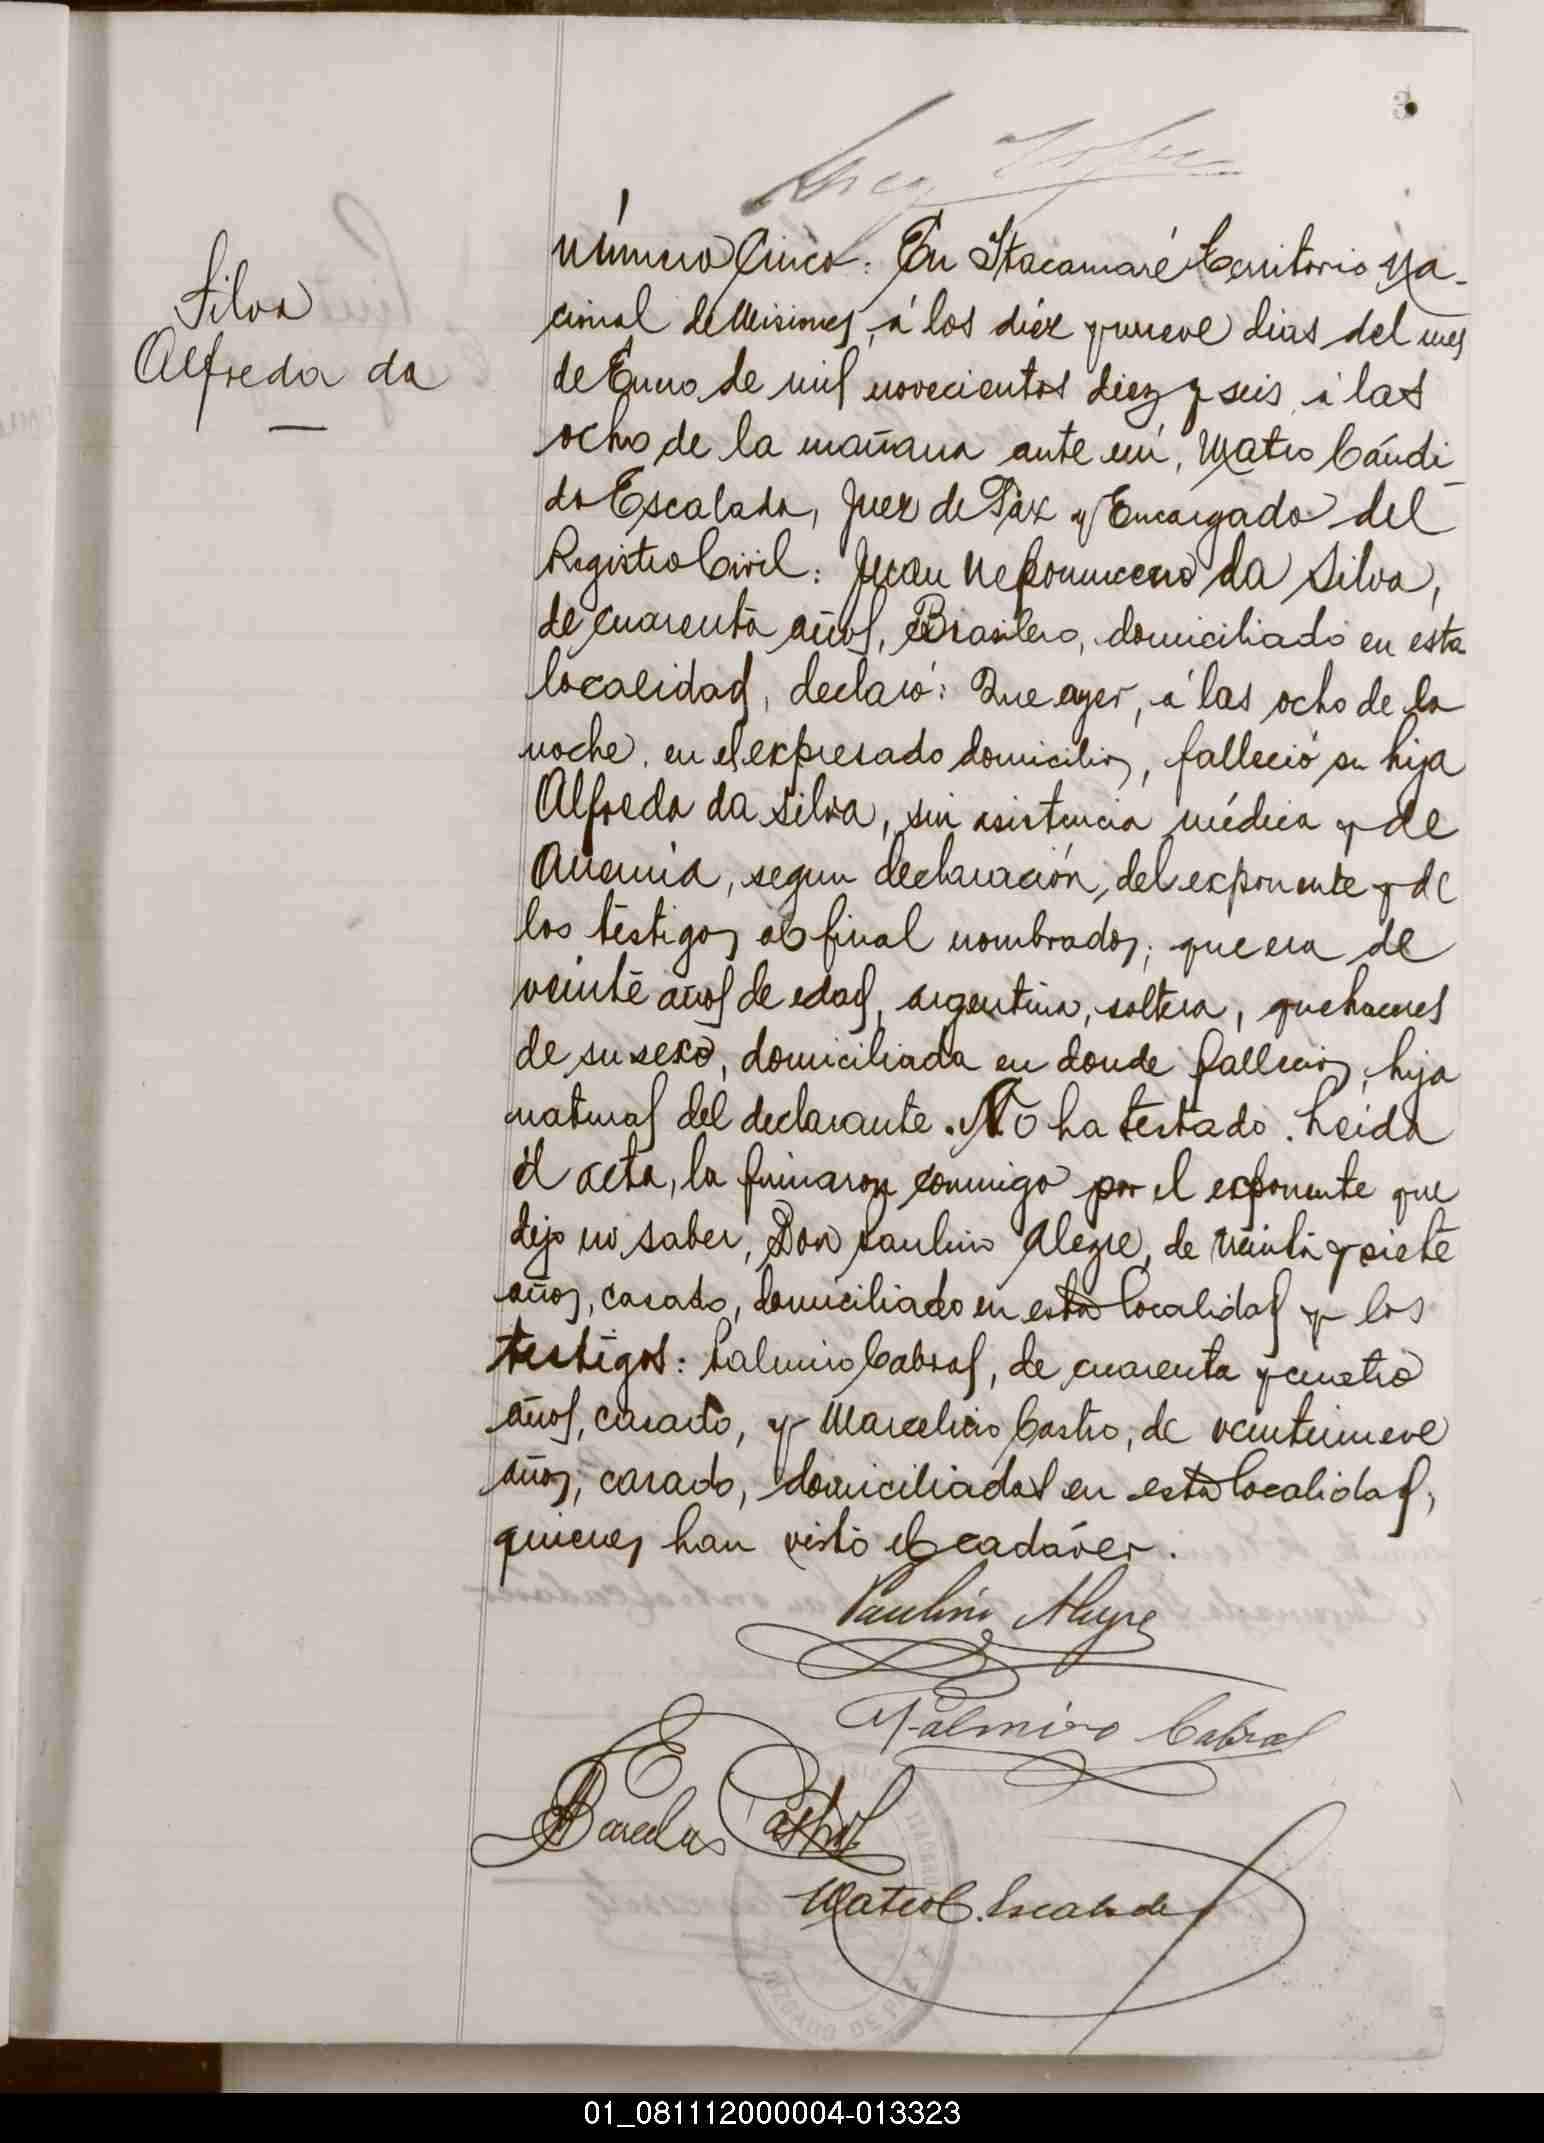 3
Silva
Alfreda da
Número Cinco: En Itacaruaré Territorio Na-
cional de Misiones, á los diéz y nueve dias del mes
de Enero de mil novecientos diez y seis á las
ocho de la mañana ante mí, Mateo Cándi-
do Escalada, Juez de Páz y Encargado del
Registro Civil: Juan Nepomuceno da Silva,
de cuarenta años, Brasilero, domiciliado en esta
localidad, declaró: Que ayer, á las ocho de la
noche, en el expresado domicilio, falleció su hija
Alfreda da Silva, sin asistencia médica y de
Anemia, segun declaración, del exponente y de
los testigos al final nombrados; que era de
veinte años de edad, argentina, soltera, quehaceres
de su sexo, domiciliada en donde falleció, hija
natural del declarante. No ha testado. Leida
el acta, la firmaron conmigo por el exponente que
dijo no saber, Don Paulino Alegre, de treinta y siete
años, casado, domiciliado en esta localidad y los
testigos: Palmiro Cabral, de cuarenta y cuatro
años, casado, y Marcelino Castro, de veintinueve
años, casado, domiciliados en esta localidad,
quienes han visto el cadáver.
Paulino Alegre
Palmiro Cabral
Castro
Mateo C. Escalada
01_081112000004-013323